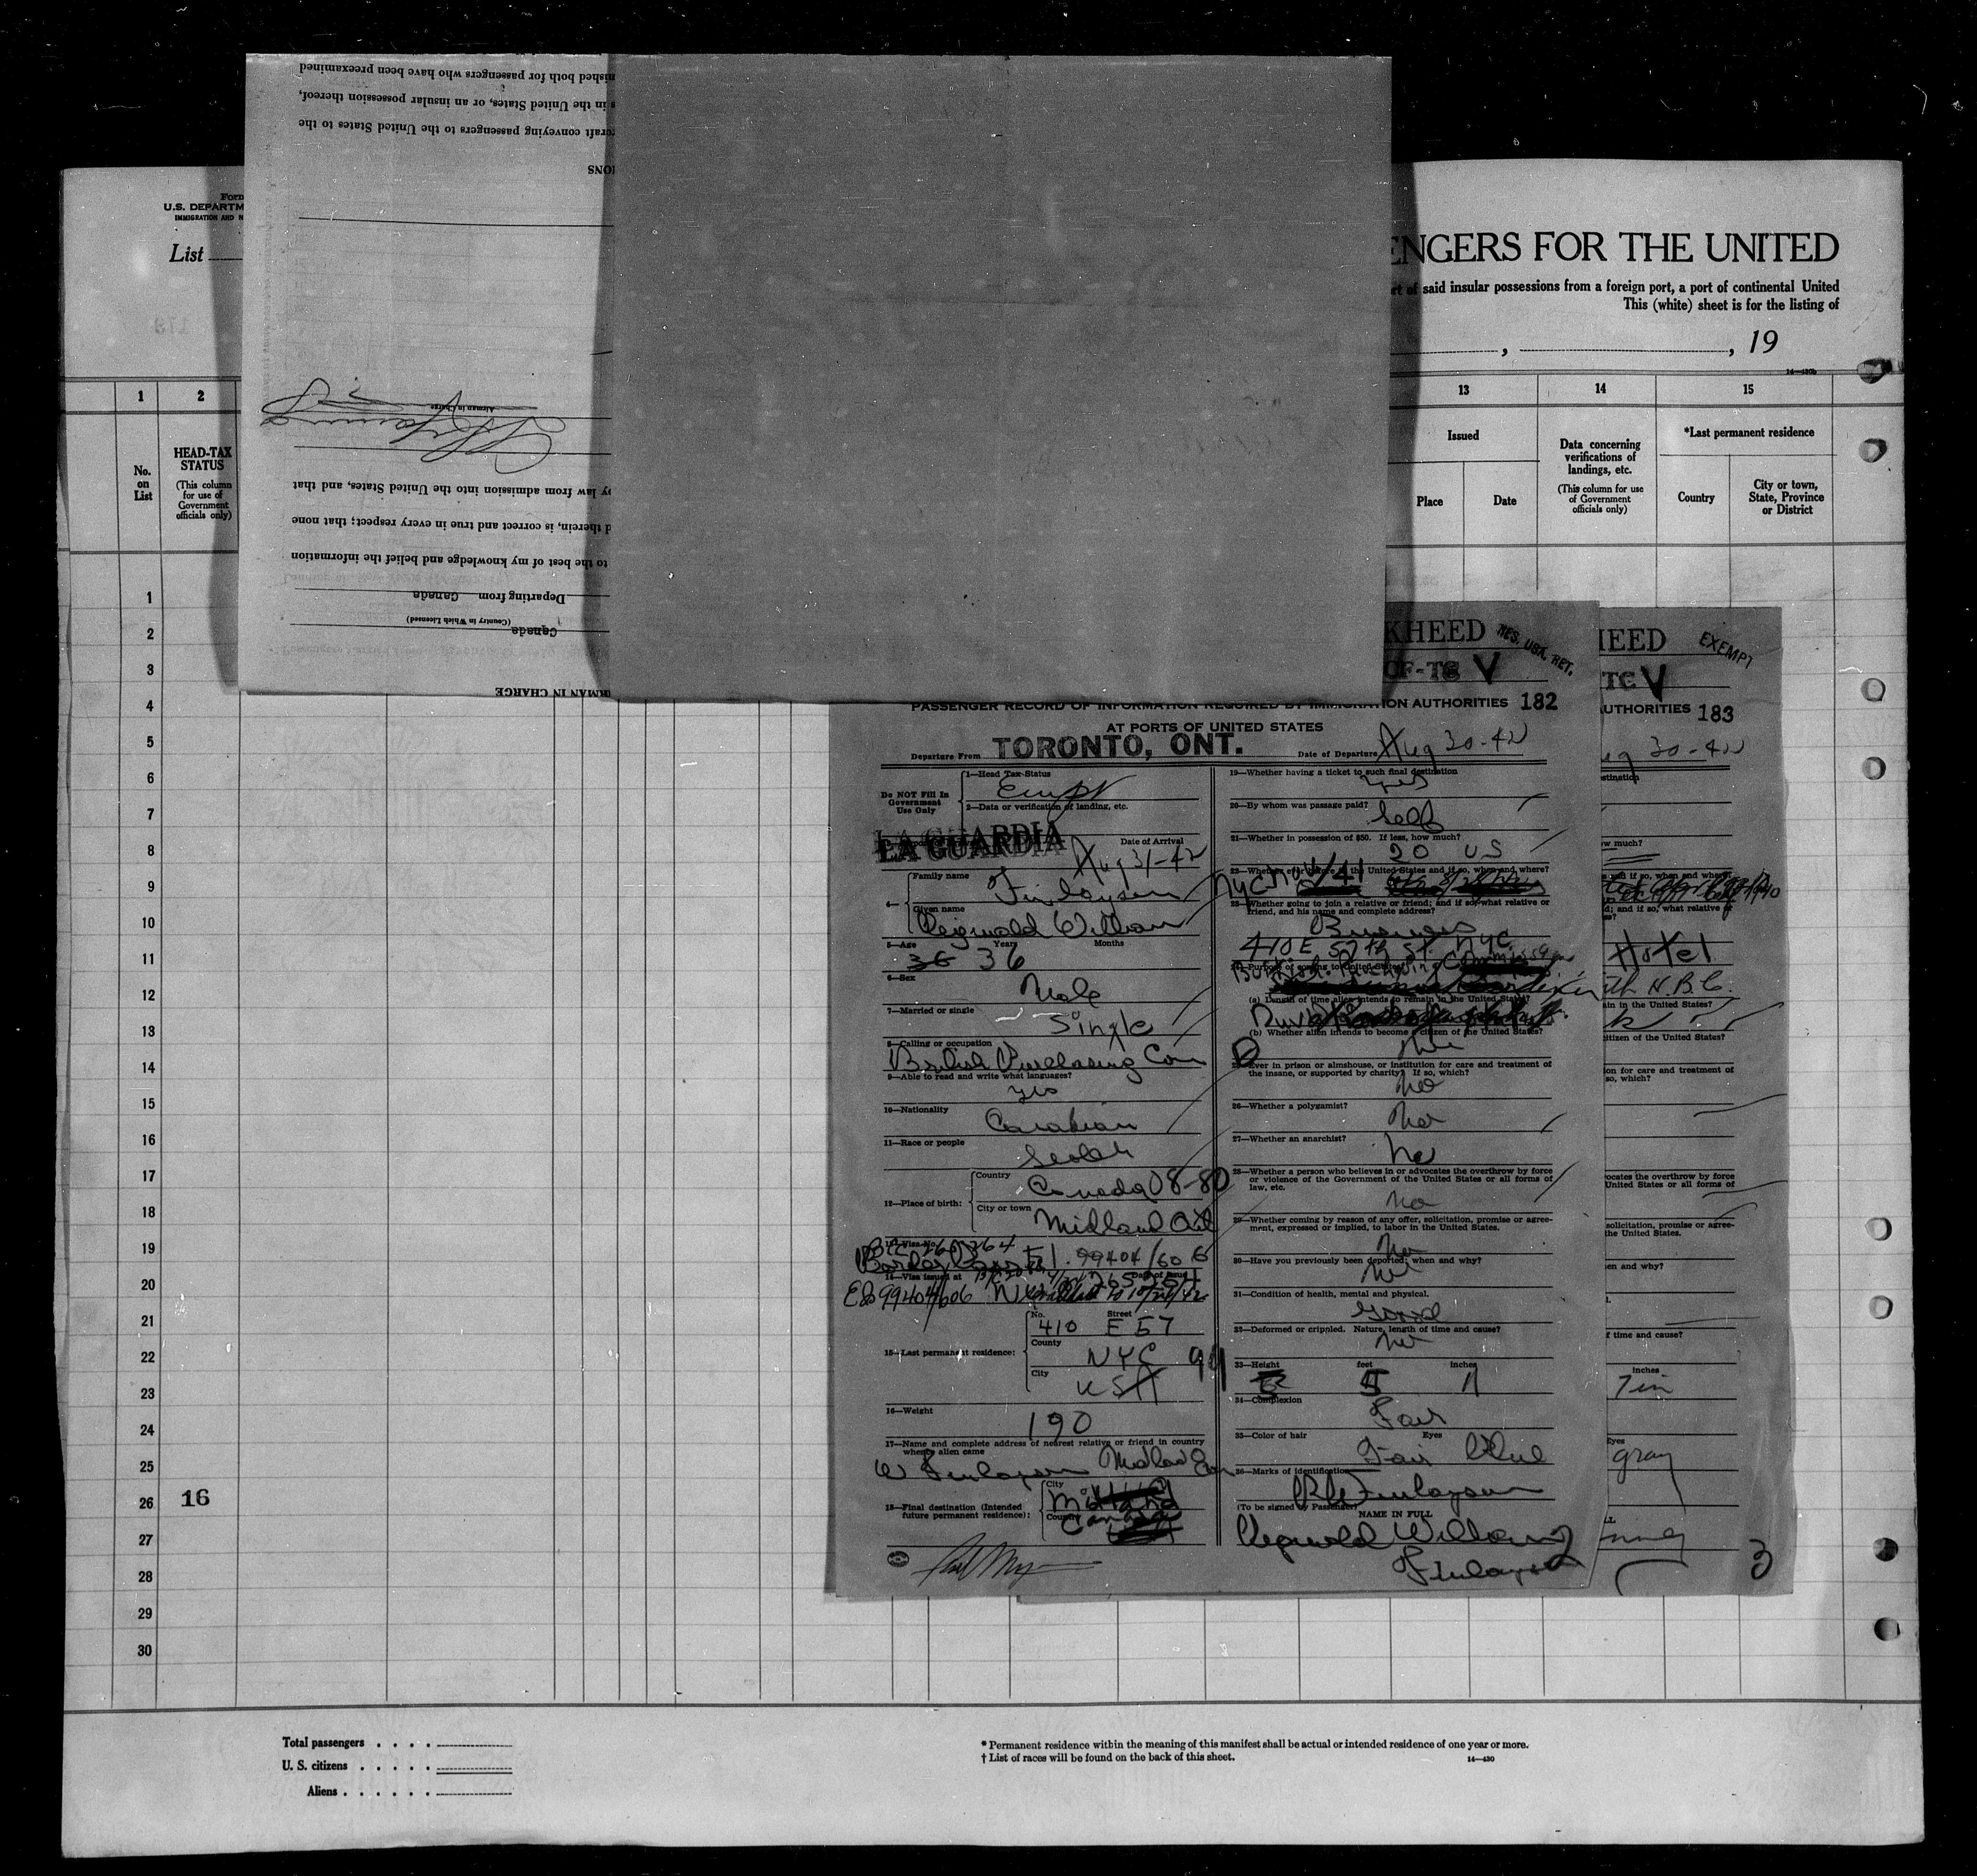 ished both for passengers who have been preexamined
s in the United States, or an insular possession thereof,
craft conveying passengers to the United States to the
IONS
Airman in Charge
y law from admission into the United States, and that
d therein, is correct and true in every respect; that none
to the best of my knowledge and belief the information
Departing from Canada
(Country in Which Licensed)
Canada
RMAN IN CHARGE
Form
U.S. DEPARTM
IMMIGRATION AND N
List
ENGERS FOR THE UNITED
rt of said insular possessions from a foreign port, a port of continental United
This (white) sheet is for the listing of
, , 19
1 2 13 14 15
No. on List
HEAD-TAX STATUS
(This column for use of Government officials only)
Issued
Place Date
Data concerning verifications of landings, etc.
(This column for use of Government officials only)
*Last permanent residence
Country
City or town, State, Province or District
1
2
3
4
5
6
7
8
9
10
11
12
13
14
15
16
17
18
19
20
21
22
23
24
25
26 16
27
28
29
30
KHEED RES. USA. RET.
CF-TC V
PASSENGER RECORD OF INFORMATION REQUIRED BY IMMIGRATION AUTHORITIES 182
AT PORTS OF UNITED STATES
Departure From TORONTO, ONT. Date of Departure Aug 30-42
Do NOT Fill In Government Use Only
1—Head Tax Status
2—Data or verification of landing, etc.
LA GUARDIA
Date of Arrival
Aug 31-42
4— Family name Finlayson
Given name Reginald William
5—Age Years Months
36 36
6—Sex
Male
7—Married or single
Single
8—Calling or occupation
British Purchasing Com
9—Able to read and write what languages?
yes
10—Nationality
Canadian
11—Race or people
Scotch
12—Place of birth: Country Canada 08-80
City or town Midland Ont
13—Visa No.
14—Visa issued at
99404/606
15—Last permanent residence: No. Street
410 E 57
County
NYC
City
USA
16—Weight
190
17—Name and complete address of nearest relative or friend in country whence alien came
W Finlayson Midland
18—Final destination (Intended future permanent residence): City Midland
Country Canada
19—Whether having a ticket to such final destination
yes
20—By whom was passage paid?
Self
21—Whether in possession of $50. If less, how much?
20 US
22—Whether ever before in the United States and if so, when and where?
NYC
23—Whether going to join a relative or friend; and if so, what relative or friend, and his name and complete address?
Business
410 E 57th St. NYC
24—Purpose of coming to United States
British Purchasing Commission
(a) Length of time alien intends to remain in the United States?
(b) Whether alien intends to become a citizen of the United States?
25—Ever in prison or almshouse, or institution for care and treatment of the insane, or supported by charity? If so, which?
No
26—Whether a polygamist?
No
27—Whether an anarchist?
No
28—Whether a person who believes in or advocates the overthrow by force or violence of the Government of the United States or all forms of law, etc.
No
29—Whether coming by reason of any offer, solicitation, promise or agreement, expressed or implied, to labor in the United States.
No
30—Have you previously been deported; when and why?
No
31—Condition of health, mental and physical.
Good
32—Deformed or crippled. Nature, length of time and cause?
No
33—Height feet inches
5 11
34—Complexion
Fair
35—Color of hair Eyes
Fair Blue
36—Marks of identification
R W Finlayson
(To be signed by Passenger)
NAME IN FULL
Reginald William
Finlayson
HEED EXEMPT
TC V
UTHORITIES 183
ug 30-42
estination
ow much?
and if so, when and where?
d; and if so, what relative or
Hotel
ith N.B.C.
ain in the United States?
citizen of the United States?
ion for care and treatment of
so, which?
vocates the overthrow by force
United States or all forms of
solicitation, promise or agree-
the United States.
en and why?
f time and cause?
inches
7in
Eyes
gray
3
Total passengers
U. S. citizens
Aliens
* Permanent residence within the meaning of this manifest shall be actual or intended residence of one year or more.
† List of races will be found on the back of this sheet. 14—430